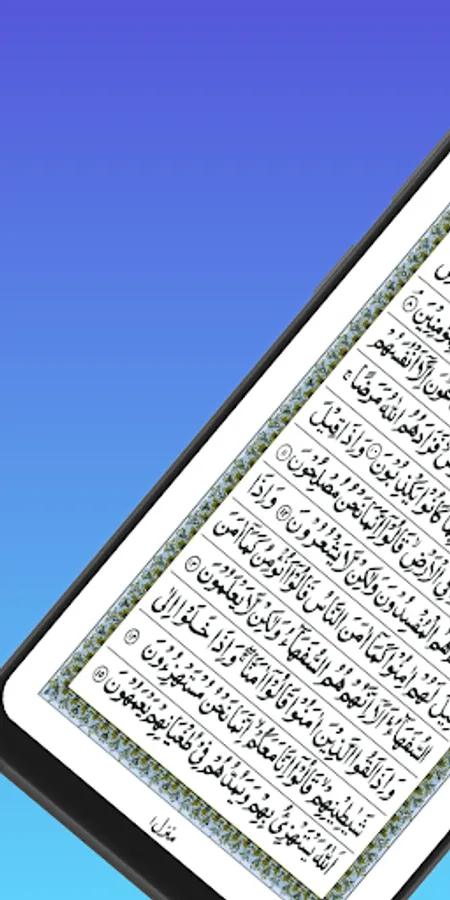 اَنْفُسَهُمْ
فَزَادَهُمُ اللّٰهُ مَرَضًا ۚ
كَانُوْا يَكْذِبُوْنَ ۝۱۰ وَاِذَا قِيْلَ
فِي الْاَرْضِ قَالُوْٓا اِنَّمَا نَحْنُ مُصْلِحُوْنَ ۝۱۱
هُمُ الْمُفْسِدُوْنَ وَلٰكِنْ لَّا يَشْعُرُوْنَ ۝۱۲ وَاِذَا
قِيْلَ لَهُمْ اٰمِنُوْا كَمَآ اٰمَنَ النَّاسُ قَالُوْٓا اَنُؤْمِنُ كَمَآ اٰمَنَ
السُّفَهَآءُ ؕ اَلَآ اِنَّهُمْ هُمُ السُّفَهَآءُ وَلٰكِنْ لَّا يَعْلَمُوْنَ ۝۱۳
وَاِذَا لَقُوا الَّذِيْنَ اٰمَنُوْا قَالُوْٓا اٰمَنَّا ۖۚ وَاِذَا خَلَوْا اِلٰى
شَيٰطِيْنِهِمْ ۙ قَالُوْٓا اِنَّا مَعَكُمْ ۙ اِنَّمَا نَحْنُ مُسْتَهْزِءُوْنَ ۝۱۴
اَللّٰهُ يَسْتَهْزِئُ بِهِمْ وَيَمُدُّهُمْ فِيْ طُغْيَانِهِمْ يَعْمَهُوْنَ ۝۱۵
منزل۱